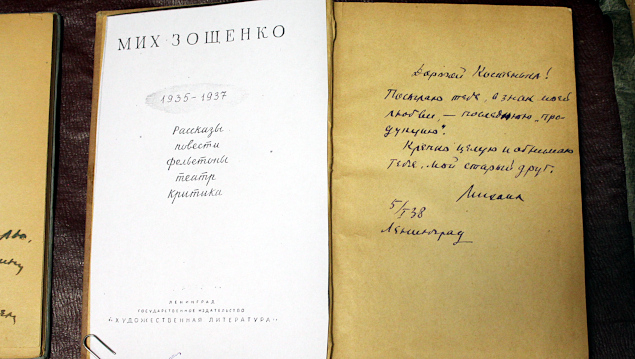 МИХ ЗОЩЕНКО
1935-1937
Рассказы
повести
фельетоны
театр
критика
ЛЕНИНГРАД
ГОСУДАРСТВЕННОЕ ИЗДАТЕЛЬСТВО
"ХУДОЖЕСТВЕННАЯ ЛИТЕРАТУРА"
Дорогой
Посылаю тебе, в знак моей
любви, — последнюю „про-
дукцию".
Крепко целую и обнимаю
тебя, мой старый друг.
Михаил
5/I 38
Ленинград